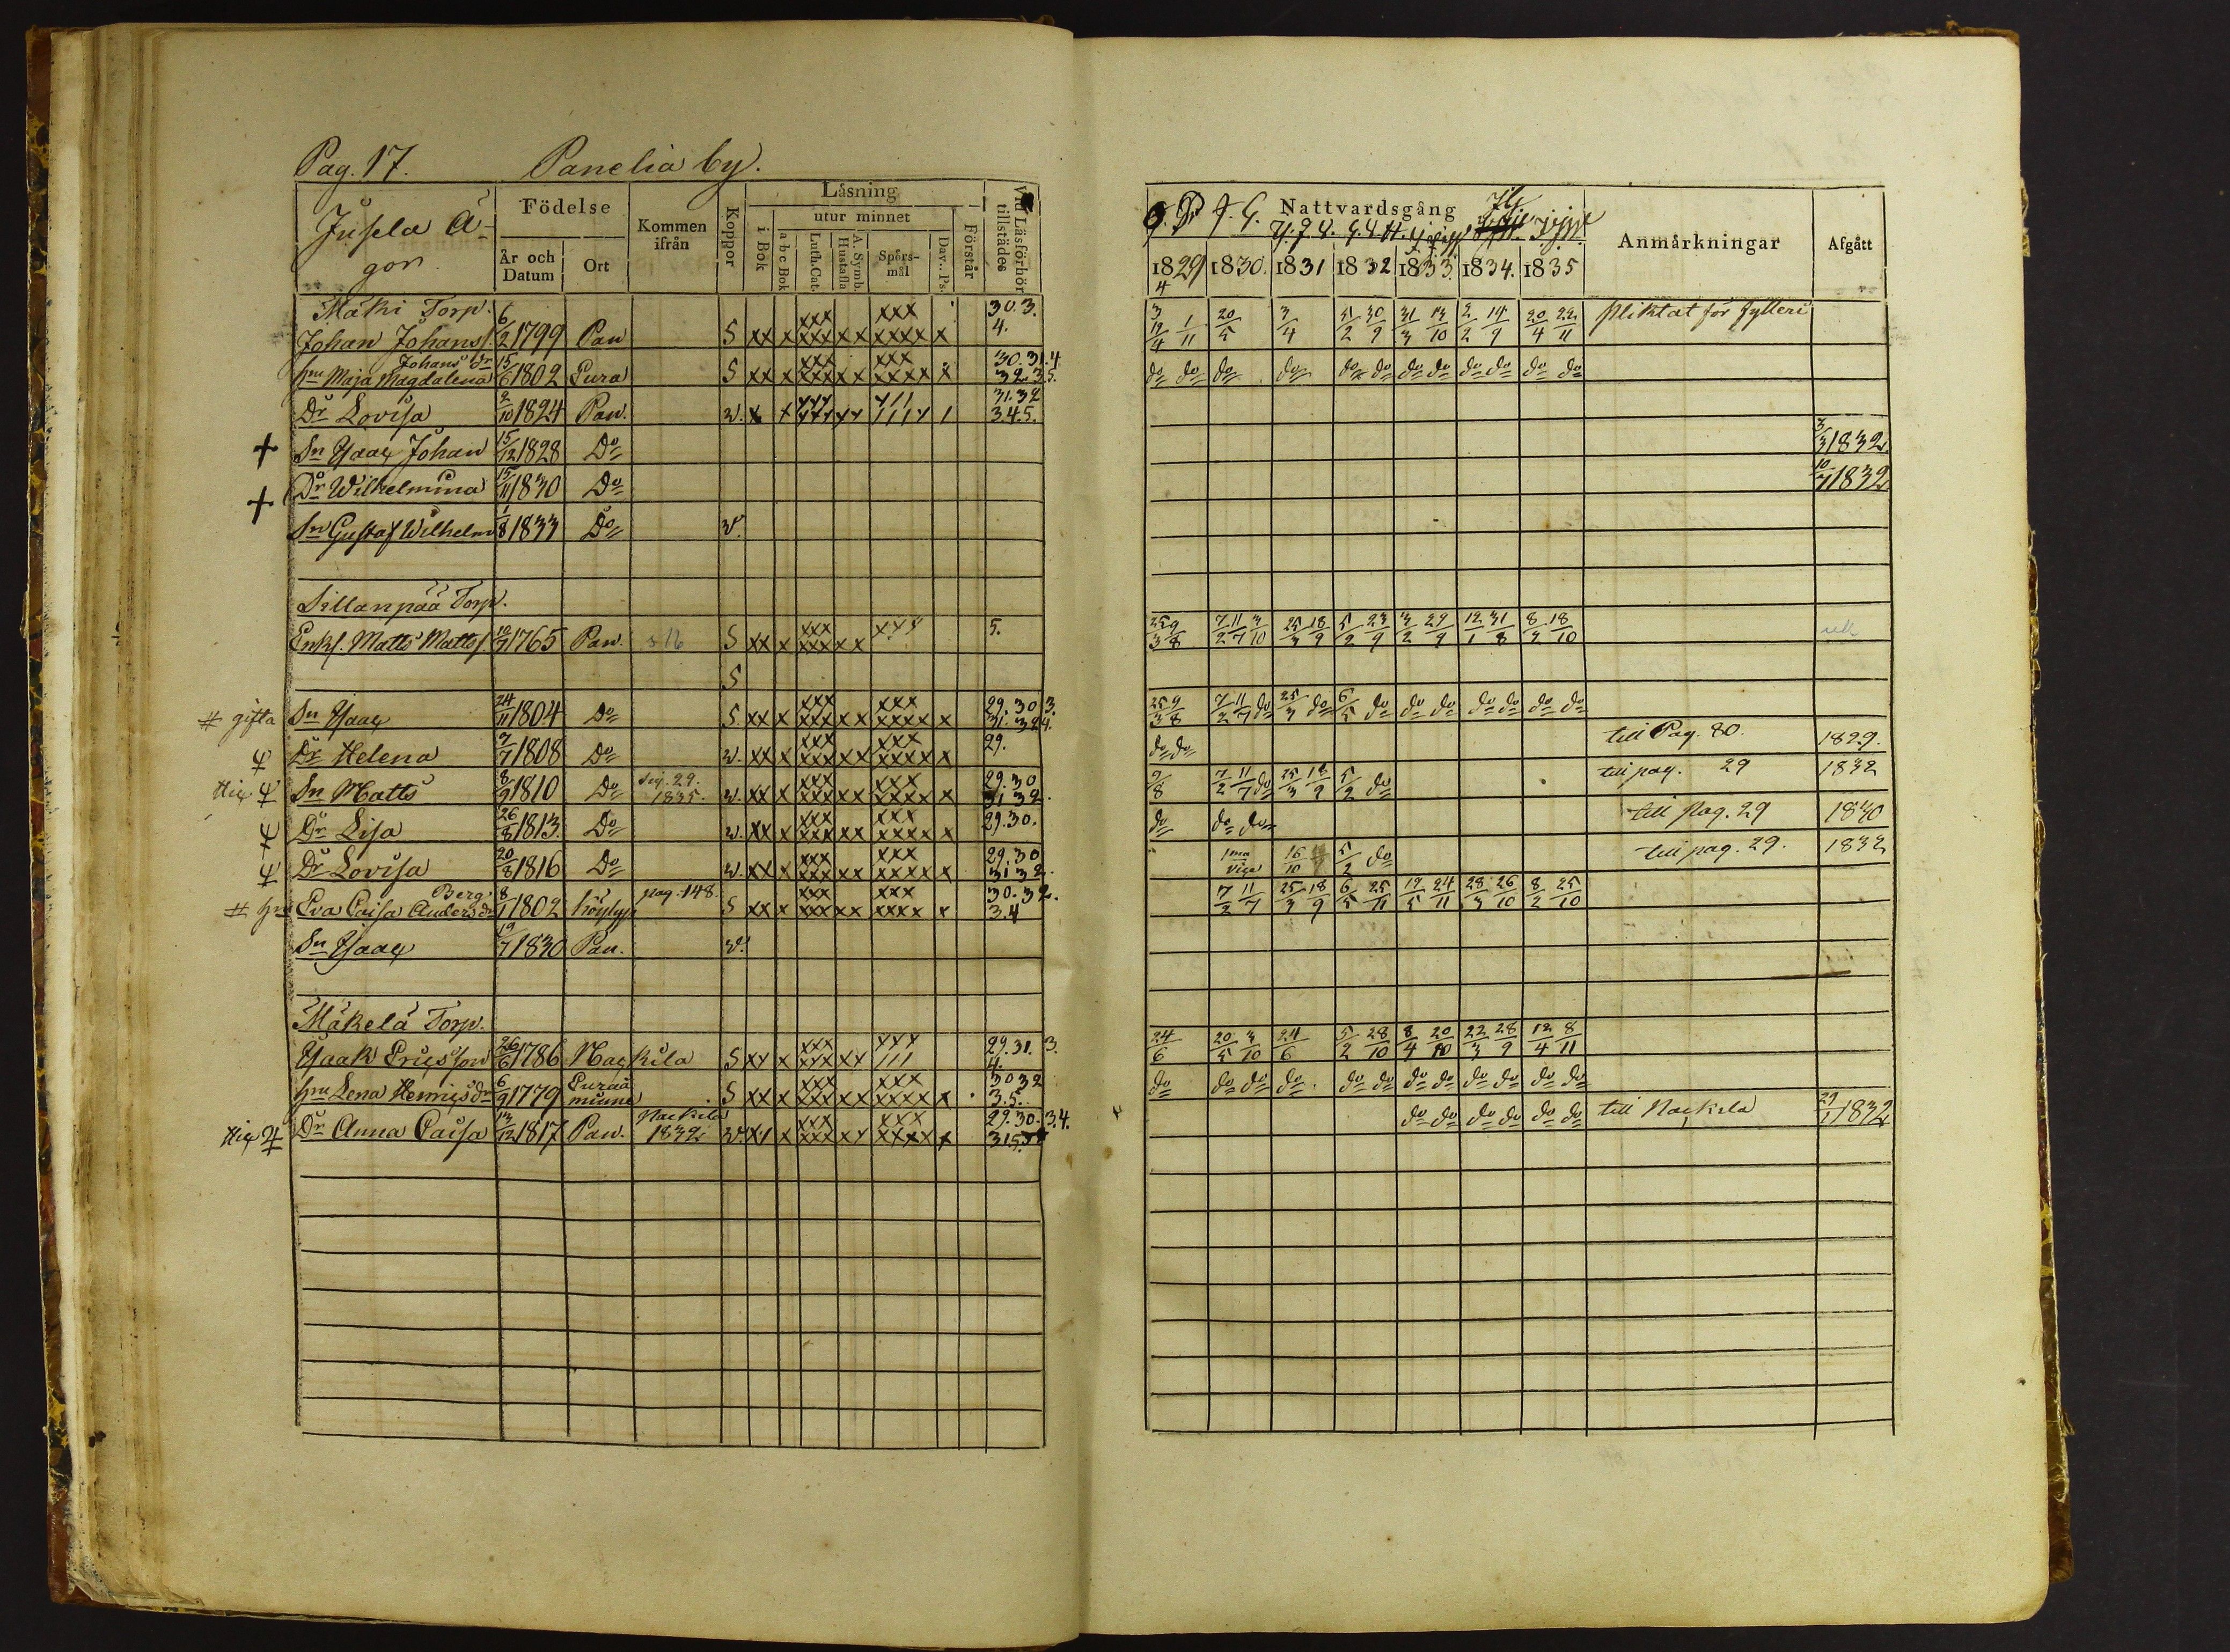 Pag. 17. Panelia by.
Jusela Ä-
gor.
Födelse
År och Datum
Ort
Kommen ifrån
Koppor
Läsning
i Bok
utur minnet
a b c Bok
Luth. Cat.
A. Symb. Hustafla
Spörs-mål
Dav. Ps.
Förstår
Vid Läsförhör tillstädes
Nattvardsgång
1829 1830. 1831 1832 1833. 1834. 1835
Anmärkningar
Afgått
Mäki Torp.
Johan Johanss. 6/2 1799 Pan S xx x xxx xxx xx xxx xxxx x 30.3. 4. 3/4 19/4 1/11 20/5 3/4 5/2 30/9 31/3 13/10 2/2 14/9 20/4 22/11 pliktat för fylleri
Johans dr
hu Maja Magdalena 15/6 1802 Eura S xx x xxx xxx xx xxx xxxx x 30.31.4 32.3.5. do do do do do do do do do do do do
Dr Lovisa 2/10 1824 Pan. v. 31.32 3.4.5.
+ Sn Isaac Johan 15/12 1828 Do 3/3 1832.
+ Dr Wilhelmina 15/11 1830 Do 10/7 1832
Sn Gustaf Wilhelm 1/8 1833 Do v.
Sillanpää Torp.
Enkl. Matts Matts. 1765 Pan. S xx x xxx xxx xx xxx 5. 25/3 9/8 7/2 11/7 3/10 25/3 18/9 5/2 23/9 3/2 29/9 12/1 31/8 8/3 18/10
S
# gifta Sn Isaac 24/11 1804 Do S xx x xxx xxx xx xxx xxxx x 29.30 3. 31.32 4. 25/3 9/8 7/2 11/7 do 25/3 do 6/5 do do do do do do do
Dr Helena 3/7 1808 Do v. xx x xxx xxx xx xxx xxxx x 29. do do till Pag. 80. 1829.
Sn Matts 8/9 1810 Do 1835. v. xx x xxx xxx xx xxx xxxx x 29.30 31 32. 9/8 7/2 11/7 do 25/3 18/9 5/2 do till pag. 29 1832
Dr Lisa 26/8 1813. Do v. xx x xxx xxx xx xxx xxxx x 29.30. do do do till pag. 29 1830
Dr Lovisa 20/8 1816 Do v. xx x xxx xxx xx xxx xxxx x 29.30 31 32. 1ma vice 16/10 5/2 do till pag. 29. 1832
Berg
# hu Eva Caisa Anders dr 8/1 1802 pag. 148. S xx x xxx xxx xx xxx xxxx x 30.32. 3.4 7/2 11/7 25/3 18/9 6/5 25/11 19/5 24/11 28/3 26/10 8/2 25/10
Sn Isaac 19/7 1830 Pan. v.
Mäkelä Torp.
Isaak Ericsson 26/6 1786 Nackila S 29.31. 3. 4. 24/6 20/5 3/10 24/6 5/2 28/10 8/4 20/10 22/3 28/9 12/4 8/11
hu Lena Henrics dr 6/9 1779 Euraå minne S xx x xxx xxx xx xxx xxxx x 30 32 3.5. do do do do do do do do do do do do
Dr Anna Caisa 13/12 1817 Pan. Nackila 1832 v. 29.30.3.4. do do do do do do till Nackila 29/1 1832